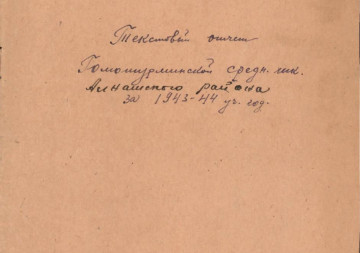 Текстовый отчет
Гомопургинской средн. шк.
Алнашского района
за 1943-44 уч. год.